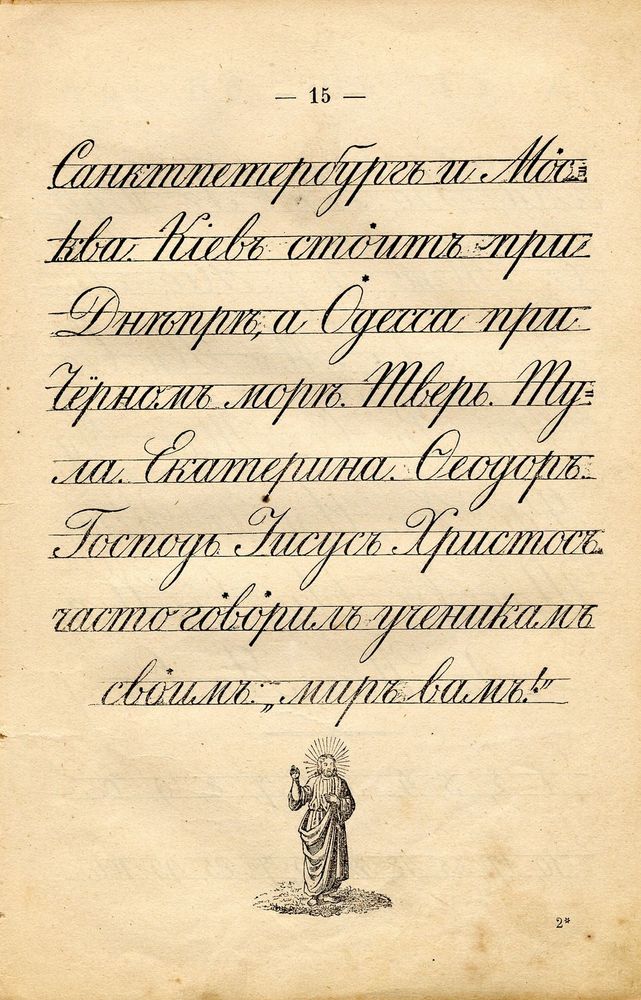 — 15 —
Санктпетербургъ и Мос=
ква. Кіевъ стоитъ при
Днѣпрѣ, а Одесса при
Чёрномъ морѣ. Тверь. Ту=
ла. Екатерина. Ѳеодоръ.
Господь Іисусъ Христосъ
часто говорилъ ученикамъ
своимъ: „миръ вамъ!“
2*